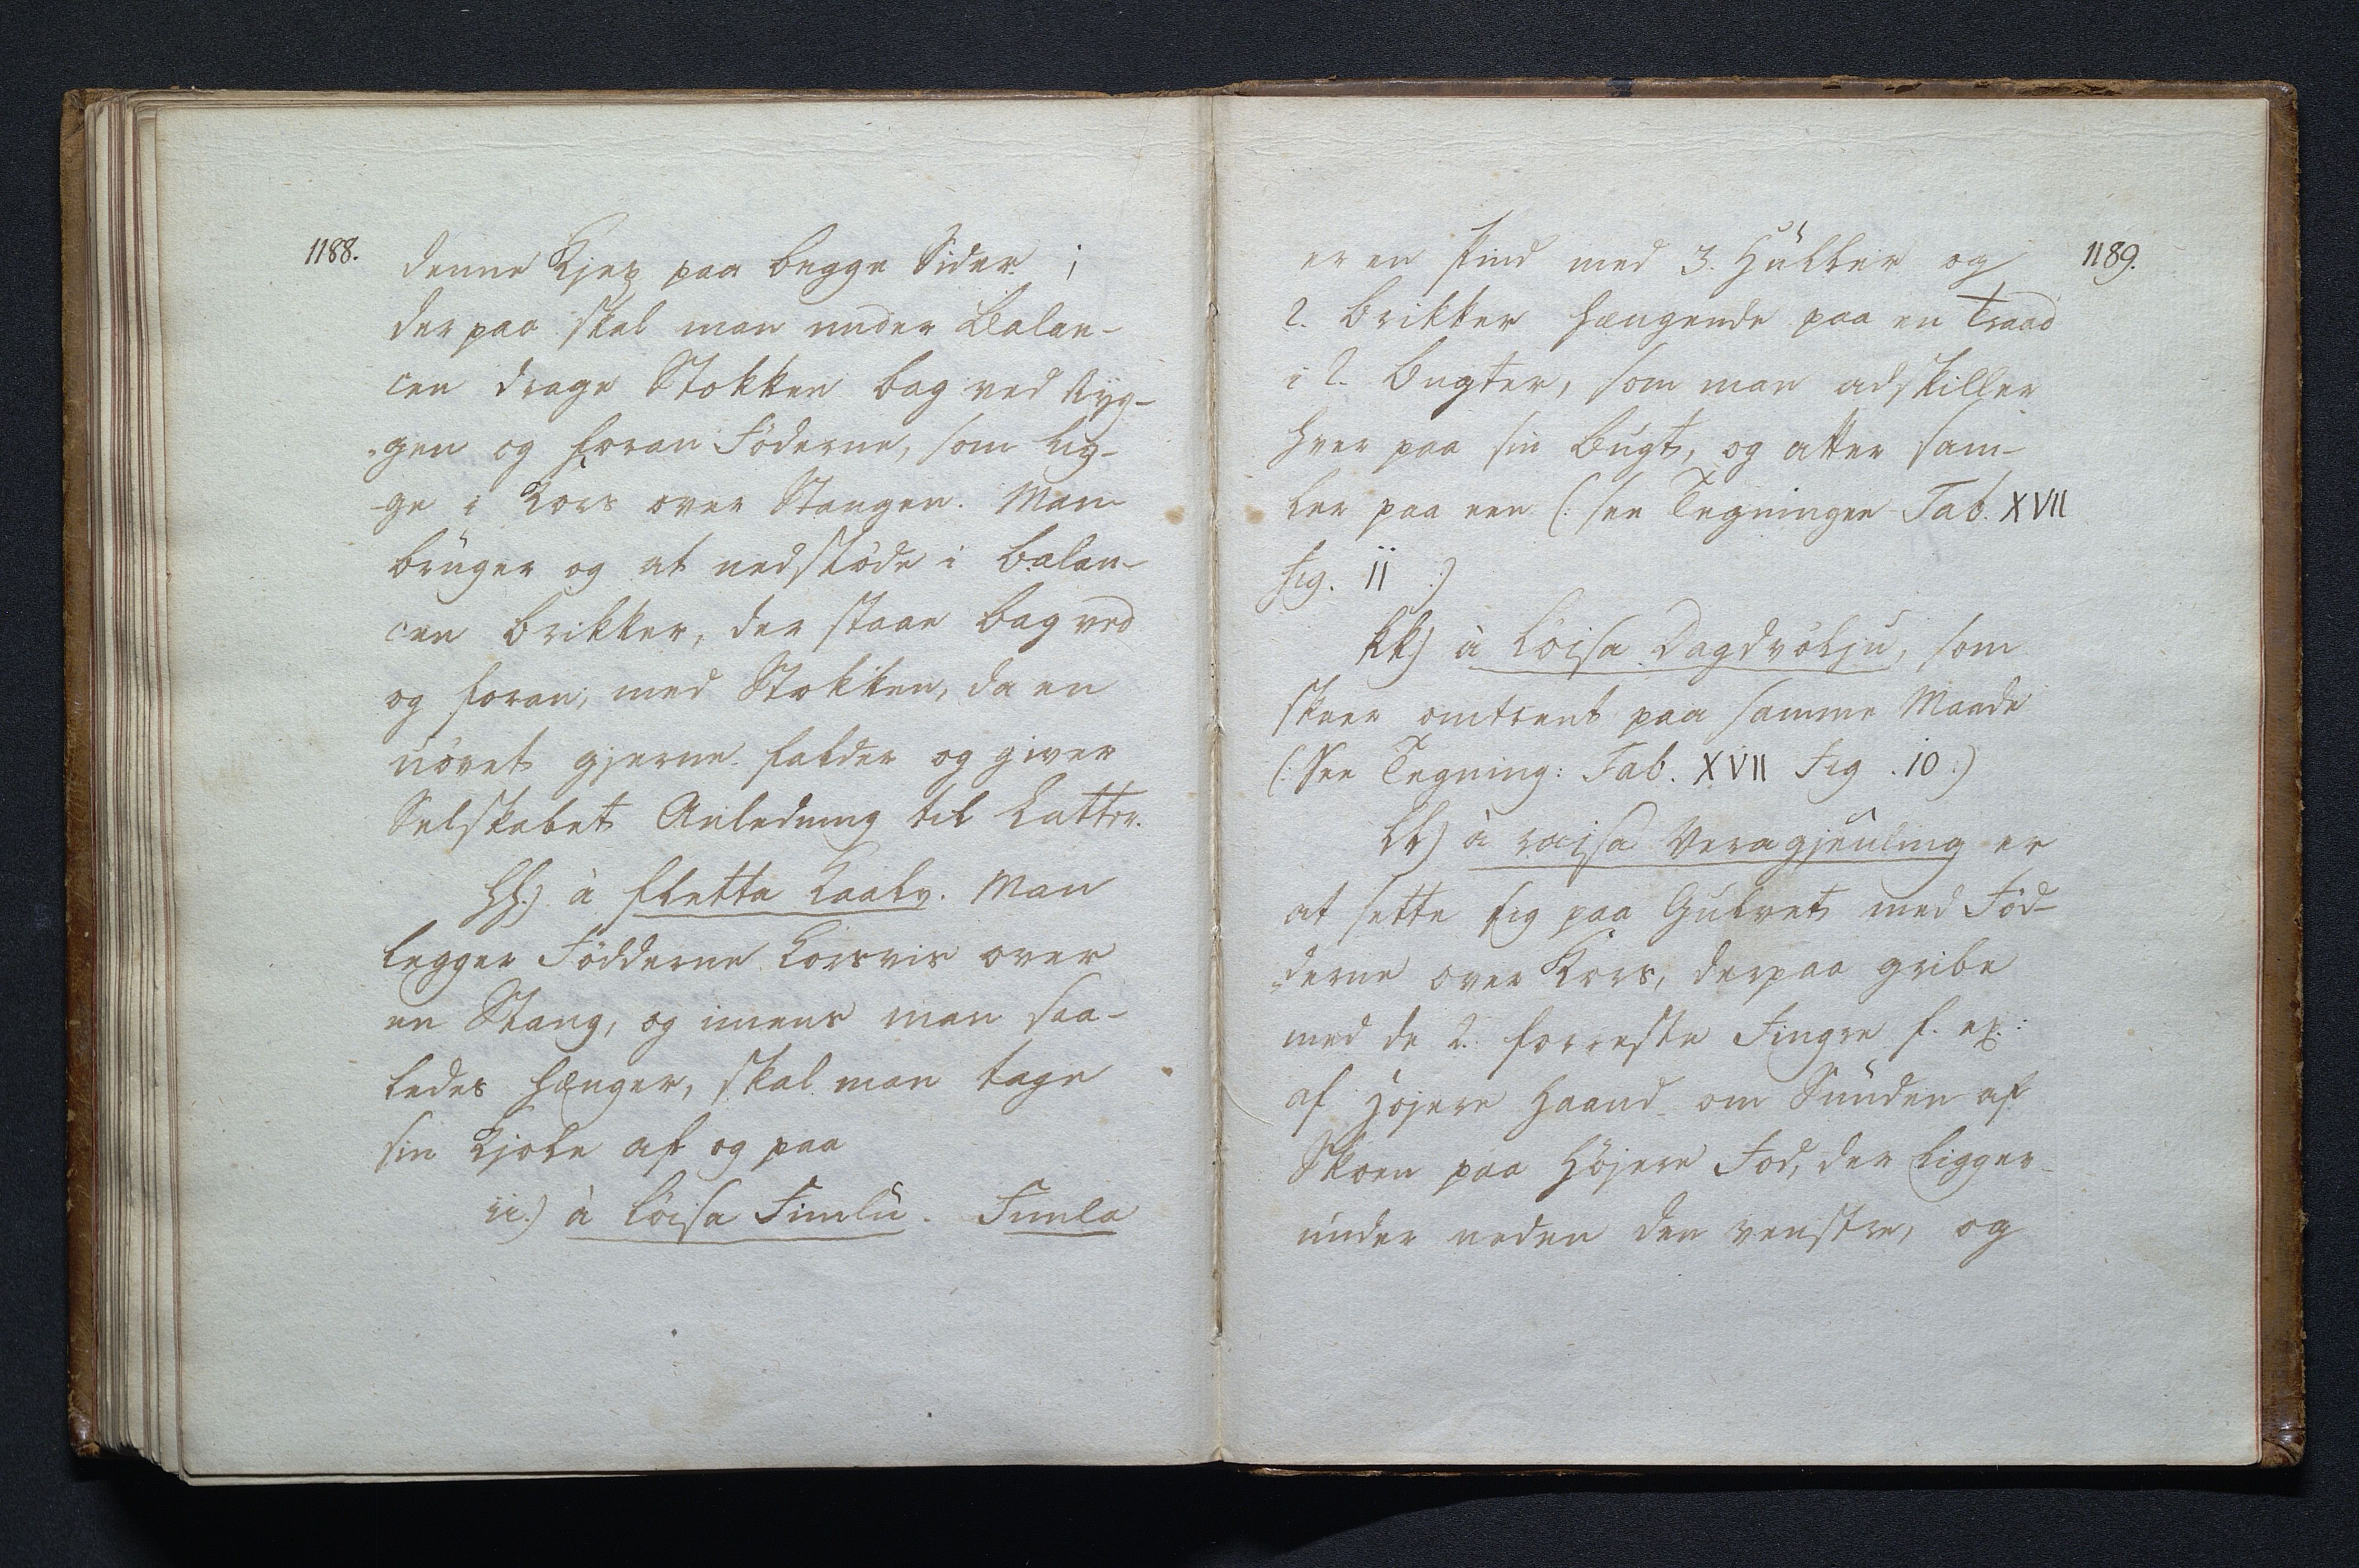 1188.
denne Kjep paa begge Sider;
derpaa skal man under Balan-
cen drage Stokken bag ved Ryg-
gen og foran Föderne, som lig-
ge i Kors over Stangen. Man
brúger og at nedstöde i Balan-
cen Brikker, der staae bag ved
og foran, med Stokken, da en
uövet gjerne falder og giver
Selskabet Anledning til Latter.
hh.) à fletta Kaalv. Man
legger Födderne Korsvis over
en Stang, og imens man saa-
ledes hænger, skal man tage
sin Kjole af og paa
ii.) à löisa Fimlú. Fimla
1189.
er en Pind med 3. Húller og
2. Brikker hængende paa en Traad
i 2. Bugter, som man adskiller
hver paa sin Búgt, og atter sam-
ler paa een (: see Tegningen Tab. XVII
Fig. 11 :)
kk) à löisa Dagdvöljú, som
skeer omtrent paa samme Maade
(: See Tegning: Tab. XVII Fig. 10 :)
ll) à raisa Veragjeúling er
at sette sig paa Gúlvet med Föd-
derne over Kors, derpaa gribe
med de 2. forreste Fingre f. ex:
af Höjere Haand om Snúden af
Skoen paa Höjere Fod, der ligger
únder neden den venstre, og